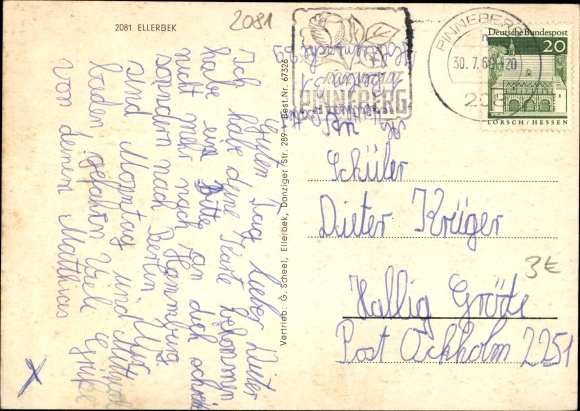 2081 ELLERBEK
2081
PINNEBERG
30. 7. 6
208
Deutsche Bundespost
20
LORSCH / HESSEN
PINNEBERG
Guten Tag lieber Dieter
Ich habe deine Karte bekommen
habe eine Bitte an dich schreib
nicht mehr nach Hamburg
sondern nach Berlin. Wir
sind Monntag und Mittwoch
baden gefahren Viele Grüße
von deinem Matthias
Vertrieb: G. Scheel, Ellerbek, Danziger Str. 289 Best.Nr. 67326
Schüler
Dieter Krüger
3€
Hallig Gröde
Post Ockholm 2251
X